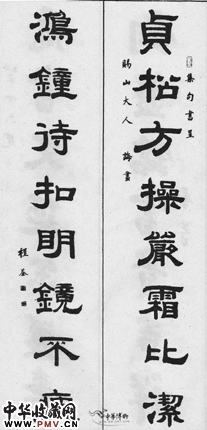 貞松方操嚴霜比潔
集句書呈
山大人
鴻鐘待扣明鏡不疲
程荃
中华收藏网
www.PMV.cn
中華博物